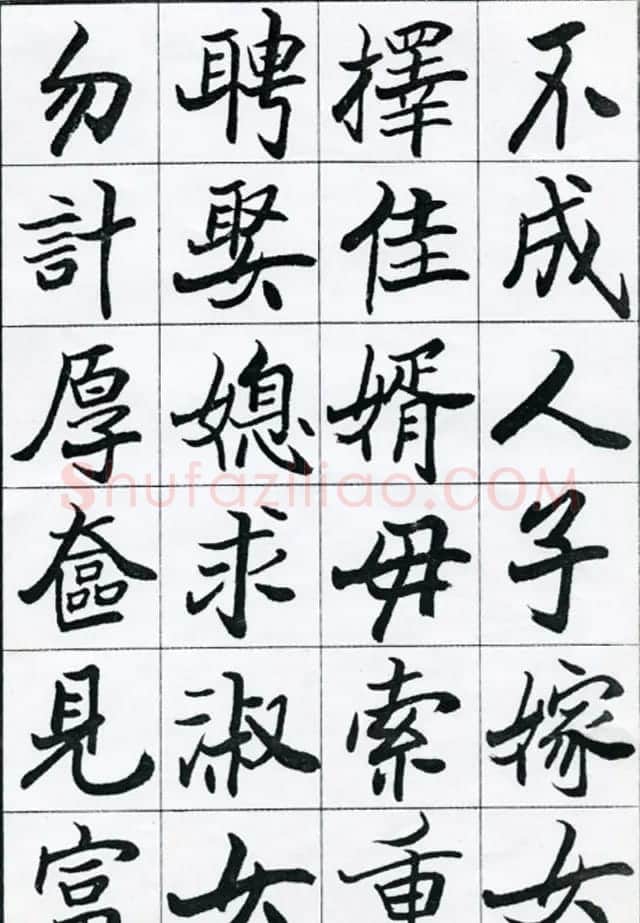 不成人子嫁女
擇佳婿毋索重
聘娶媳求淑女
勿計厚奩見富
Shufaziliao.COM